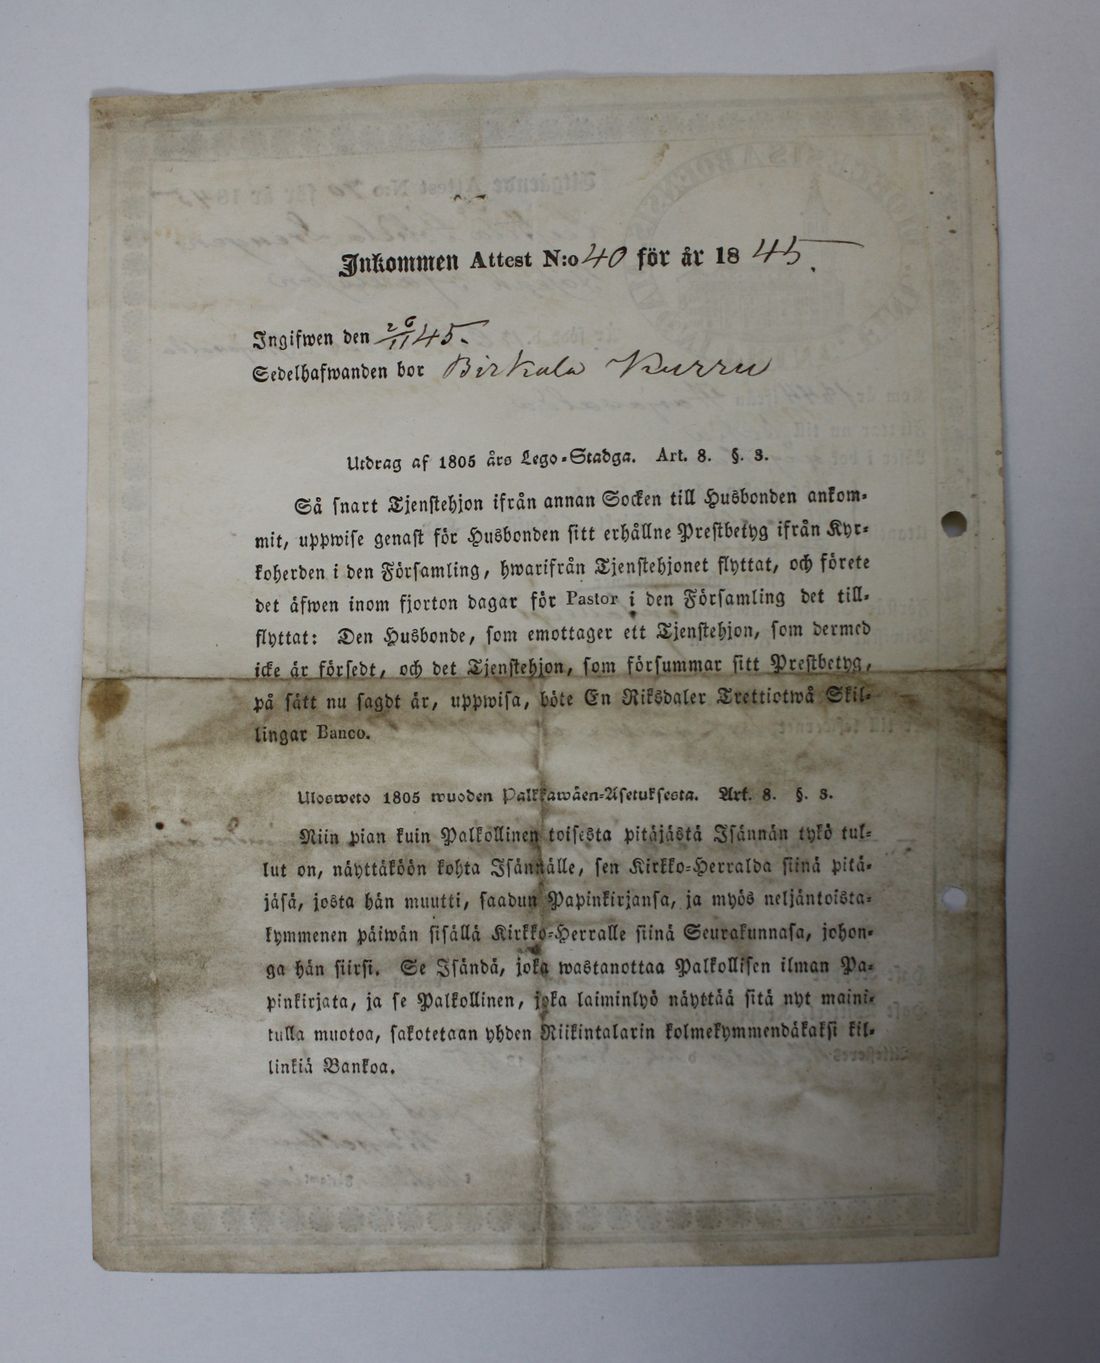 Inkommen Attest N:o 40 för år 1845.
Ingifwen den 26/11 45.
Sedelhafwanden bor Birkala Kurru
Utdrag af 1805 års Lego-Stadga. Art. 8. §. 3.
Så snart Tjenstehjon ifrån annan Socken till Husbonden ankom-
mit, uppwise genast för Husbonden sitt erhållne Prestbetyg ifrån Kyr-
koherden i den Församling, hwarifrån Tjenstehjonet flyttat, och förete
det äfwen inom fjorton dagar för Pastor i den Församling det till-
flyttat: Den Husbonde, som emottager ett Tjenstehjon, som dermed
icke är försedt, och det Tjenstehjon, som försummar sitt Prestbetyg,
på sätt nu sagdt är, uppwisa, böte En Riksdaler Trettiotwå Skil-
lingar Banco.
Ulosweto 1805 wuoden Palkkawäen-Asetuksesta. Art. 8. §. 3.
Niin pian kuin Palkollinen toisesta pitäjästä Isännän tykö tul-
lut on, näyttäköön kohta Isännälle, sen Kirkko-Herralda siinä pitä-
jäsä, josta hän muutti, saadun Papinkirjansa, ja myös neljäntoista-
kymmenen päiwän sisällä Kirkko-Herralle siinä Seurakunnasa, johon-
ga hän siirsi. Se Isändä, joka wastanottaa Palkollisen ilman Pa-
pinkirjata, ja se Palkollinen, joka laiminlyö näyttää sitä nyt maini-
tulla muotoa, sakotetaan yhden Riikintalarin kolmekymmendäkaksi kil-
linkiä Bankoa.